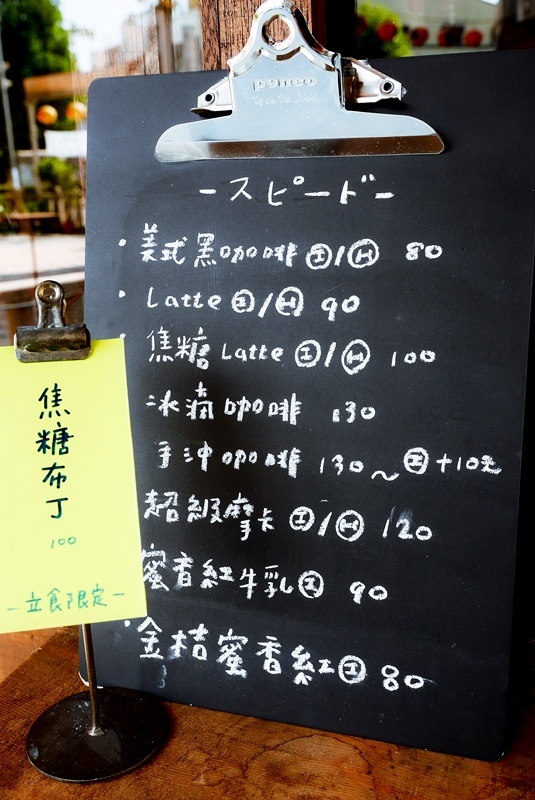 penco
-スピード-
・美式黑咖啡 Ⓘ/Ⓗ 80
・Latte Ⓘ/Ⓗ 90
・焦糖 Latte Ⓘ/Ⓗ 100
冰滴咖啡 130
手沖咖啡 130~Ⓘ+10元
超級摩卡 Ⓘ/Ⓗ 120
蜜香紅牛乳Ⓘ 90
・金桔蜜香紅Ⓘ 80
焦糖布丁
100
-立食限定-